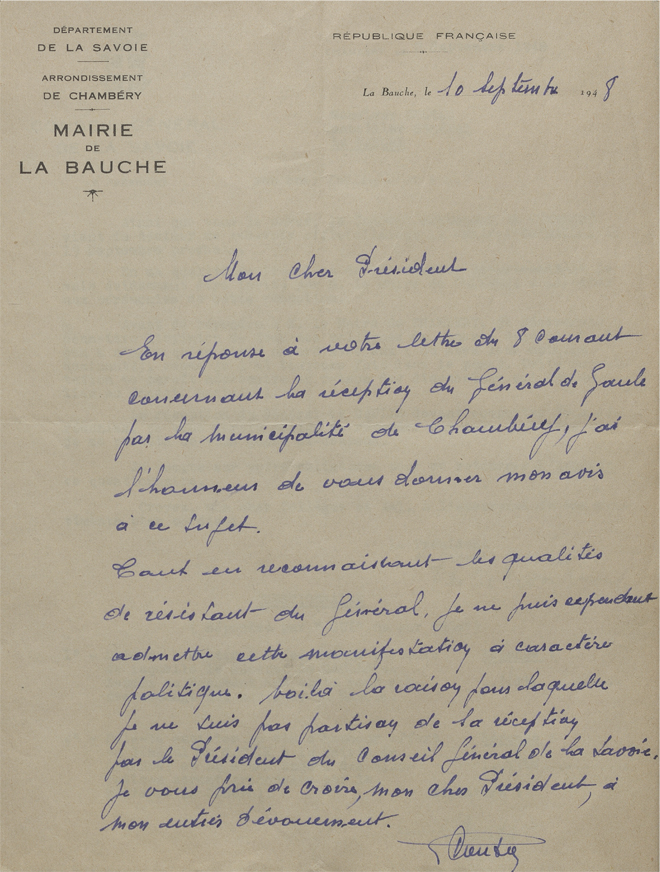 DÉPARTEMENT
DE LA SAVOIE
ARRONDISSEMENT
DE CHAMBÉRY
MAIRIE
DE
LA BAUCHE
RÉPUBLIQUE FRANÇAISE
La Bauche, le 10 Septembre 1948
Mon cher Président
En réponse à votre lettre du 8 courant
concernant la réception du Général de Gaule
par la municipalité de Chambéry, j'ai
l'honneur de vous donner mon avis
à ce sujet.
Tout en reconnaissant les qualités
de résistant du Général, je ne puis cependant
admettre cette manifestation à caractère
politique. Voilà la raison pour laquelle
je ne suis pas partisan de sa réception
par le Président du Conseil Général de la Savoie.
Je vous prie de croire, mon cher Président, à
mon entier dévouement.